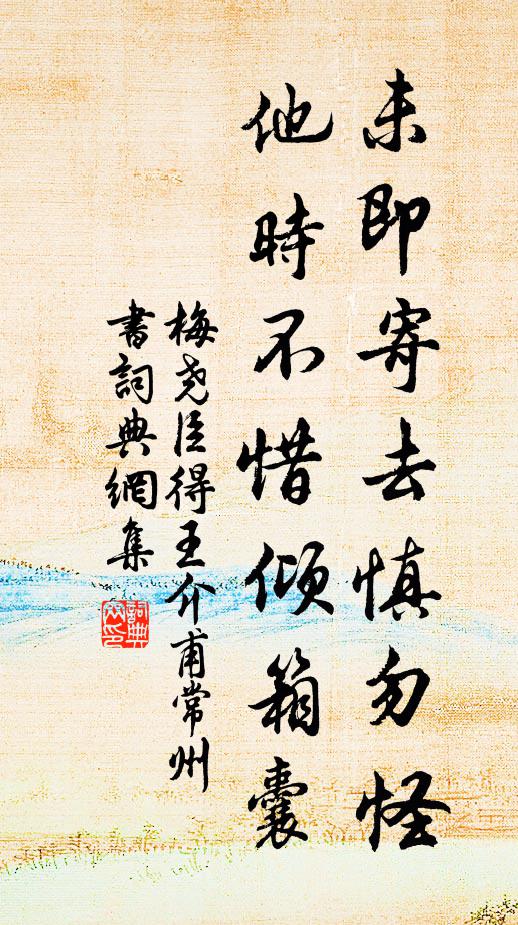 未即寄去慎勿怪
他時不惜傾箱囊
梅尧臣得王介甫常州
書詞典網集
詞典